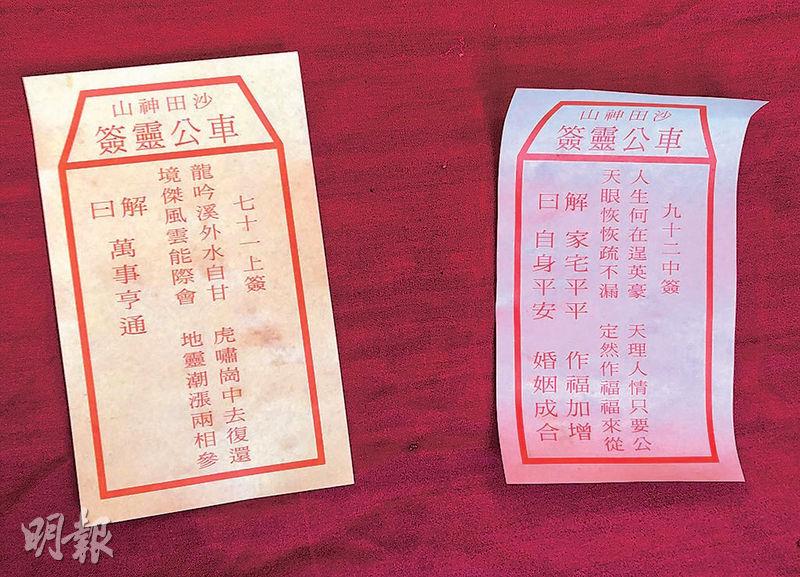 沙田神山
車公靈簽
七十一上簽
龍吟溪外水自甘 虎嘯崗中去復還
境傑風雲能際會 地靈潮漲兩相參
解 萬事亨通
曰
沙田神山
車公靈簽
九十二中簽
人生何在逞英豪 天理人情只要公
天眼恢恢疏不漏 定然作福福來從
解 家宅平平 作福加增
曰 自身平安 婚姻成合
明報